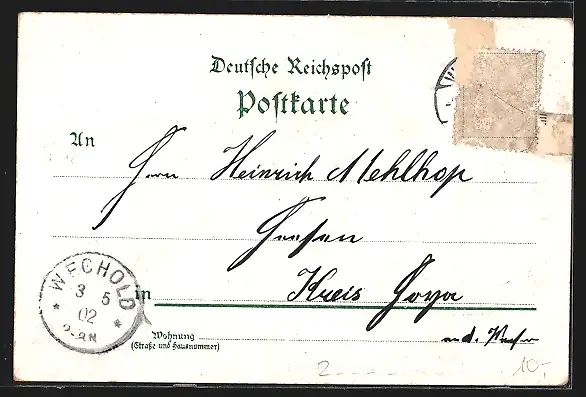 Deutsche Reichspost
Postkarte
An
Herrn Heinrich Mehlhop
Heesen
in Kreis Hoya
a. d. Weser
Wohnung
(Straße und Hausnummer)
WECHOLD
3 5
02
2-3N
2
10,-